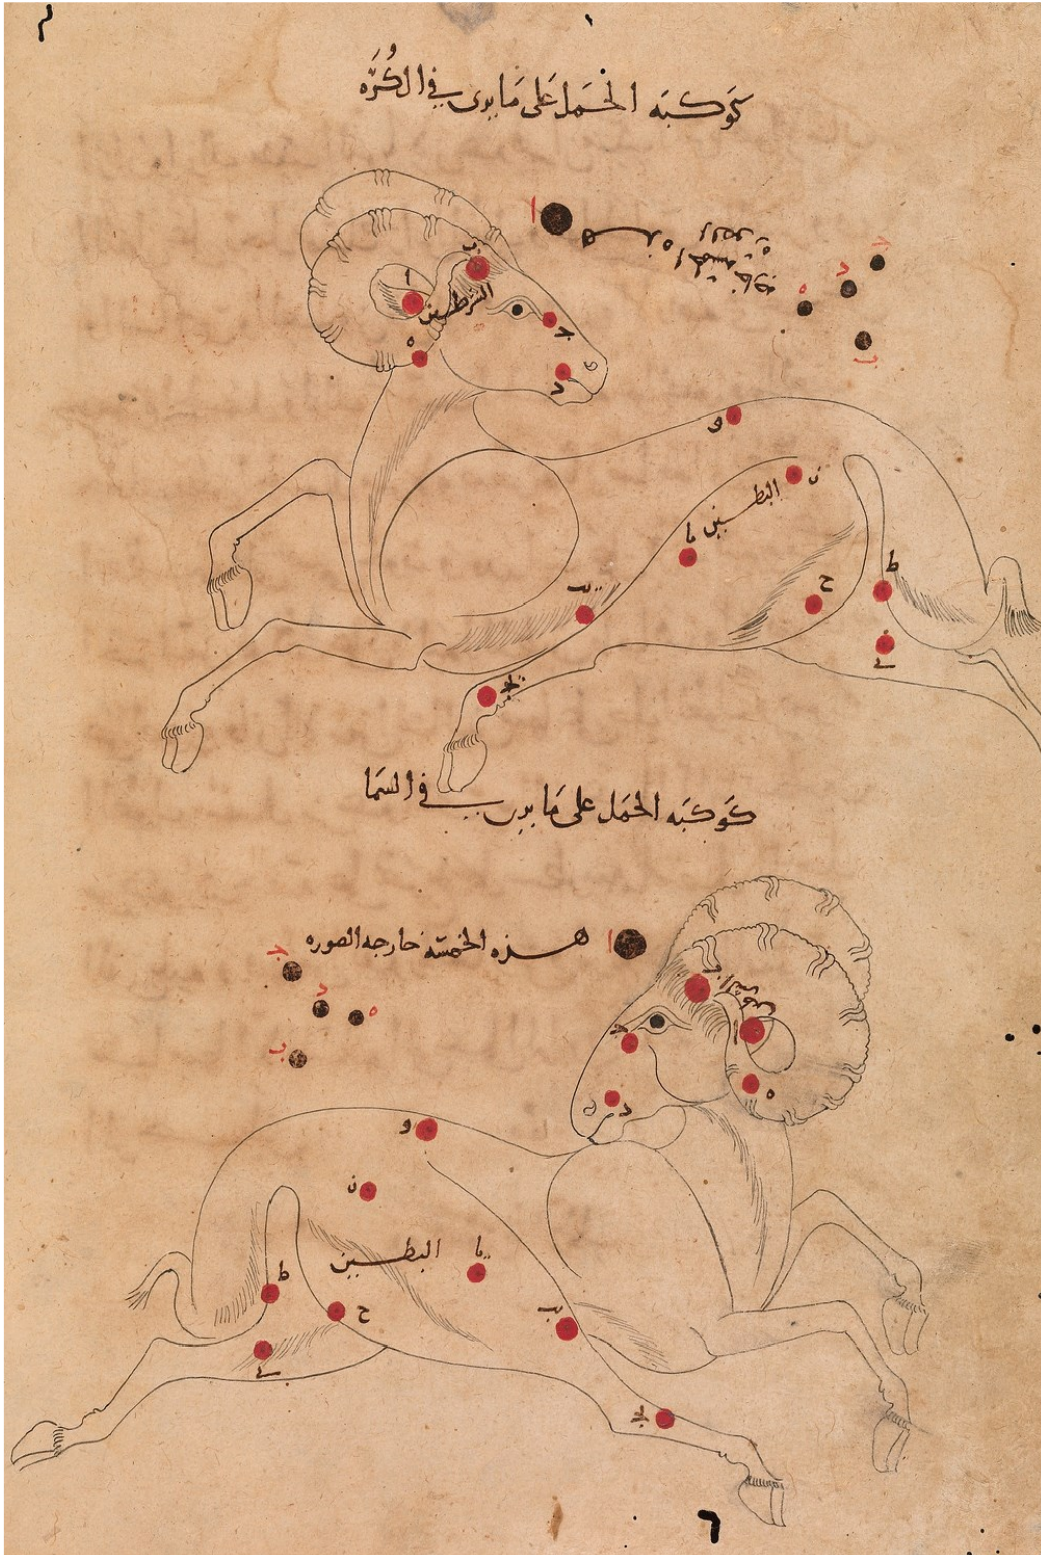 كوكبه الحمل على ما يرى في الكره
ا
هذه الخمسة خارجه الصوره
ج
د
ه
ب
ب
ا
الشرطين
ج
ه
د
و
ز
البطين
يا
يب
ح
ط
ي
يج
كوكبه الحمل على ما يرى في السما
ا
هذه الخمسه خارجه الصوره
ج
د
ه
ب
ب
الشرطين
ج
د
ه
و
ز
البطين
يا
ط
ح
يب
ي
يج